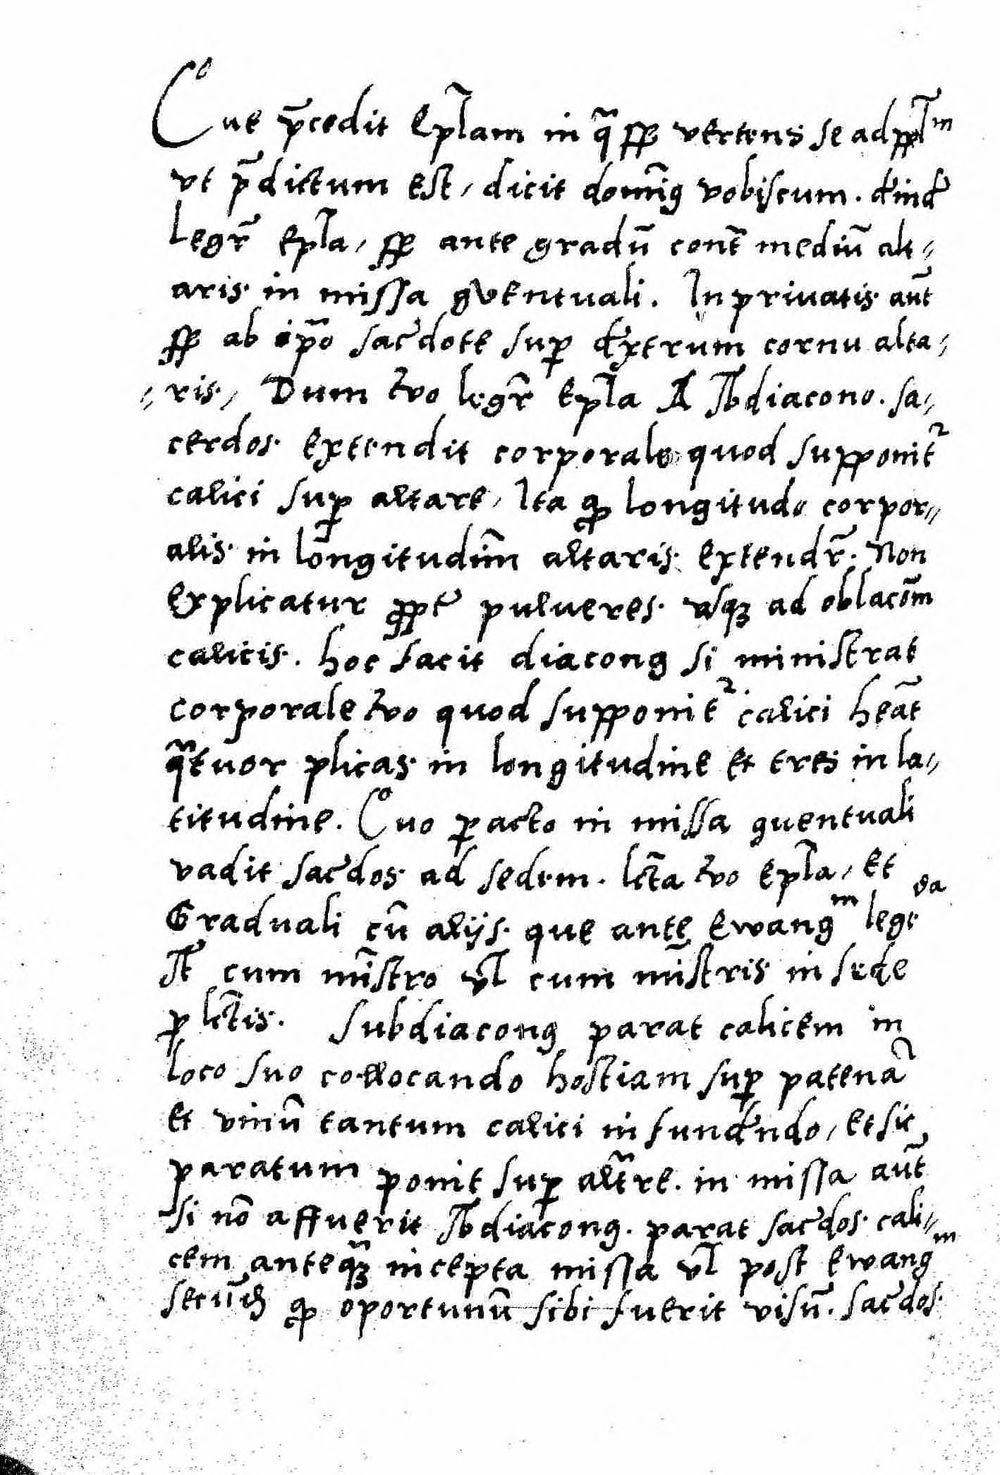 que p̄cedit Ep̄lam in q̄ sp̄ vertens se ad pp̄lm
vt p̄dictum est, dicit domīꝰ vobiscum. deinde
legr̄ ep̄la, sp̄ ante gradū cont̄ mediū alt-
aris in missa ꝯventuali. In privatis aūt
sp̄ ab ip̄o sac̄dote sup̄ dextrum cornu alta-
ris, Dum v̄o legr̄ Ep̄la A s̄bdiacono. sa-
cerdos extendit corporale quod supponit᷑
calici sup̄ altare, Ita ꝙ longitudo corpor-
alis in longitudinē altaris extendr̄. Non
explicatur ꝓpt̄ pulveres usqꝫ ad oblacōm
calicis. hoc facit diaconꝰ si ministrat
corporale v̄o quod supponit᷑ calici heāt
q̄tuor plicas in longitudine et tres in la-
titudine. Quo ꝑacto in missa ꝯventuali
vadit sac̄dos ad sedem. lc̄ta v̄o Ep̄la, Et
Graduali cū alijs que ante Ewangm legēda
st̄ cum mīstro vl̄ cum mīstris in sede
ꝑlc̄tis. Subdiaconꝰ parat calicem in
loco suo collocando hostiam sup̄ patenā
et vinū tantum calici infundendo, et sic
paratum ponit sup̄ altāre. in missa aūt
si nō affuerit s̄bdiaconꝰ. parat sac̄dos cali-
cem anteqꝫ incepta missa vl̄ post Ewangm
secūdꝫ ꝙ oportunū sibi fuerit visū. Sac̄dos